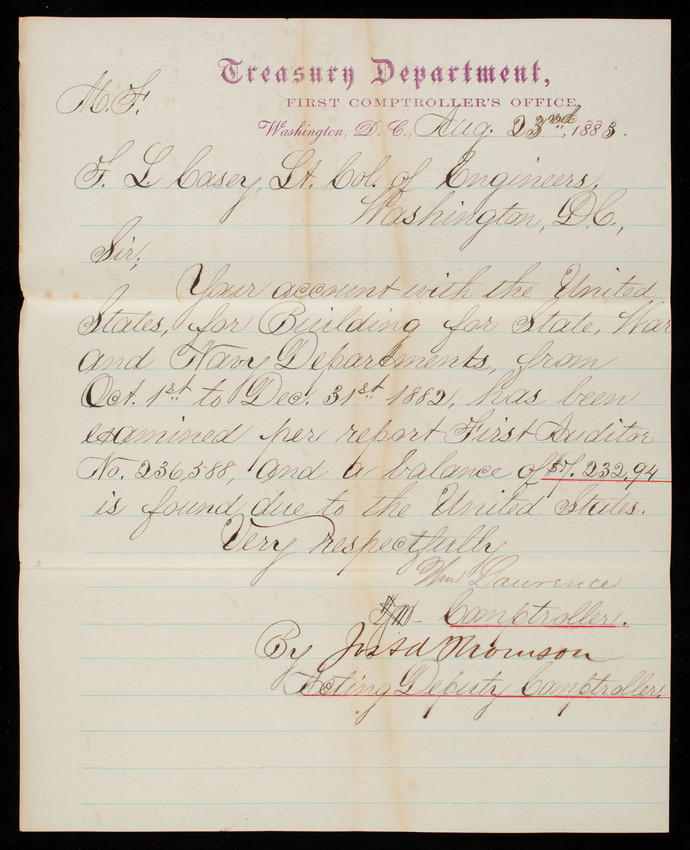 Treasury Department,
M. F.
FIRST COMPTROLLER'S OFFICE,
Washington, D. C., Aug. 23rd, 1883.
T. L. Casey, Lt. Col. of Engineers,
Washington, D.C.,
Sir;
Your account with the United
States, for Building for State, War
and Navy Departments, from
Oct. 1st to Dec. 31st 1882, has been
examined per report First Auditor
No. 236,588, and a balance of
is found due to the United States.
Very respectfully
Wm Lawrence
Comptroller.
By Thomson
Acting Deputy Comptroller.